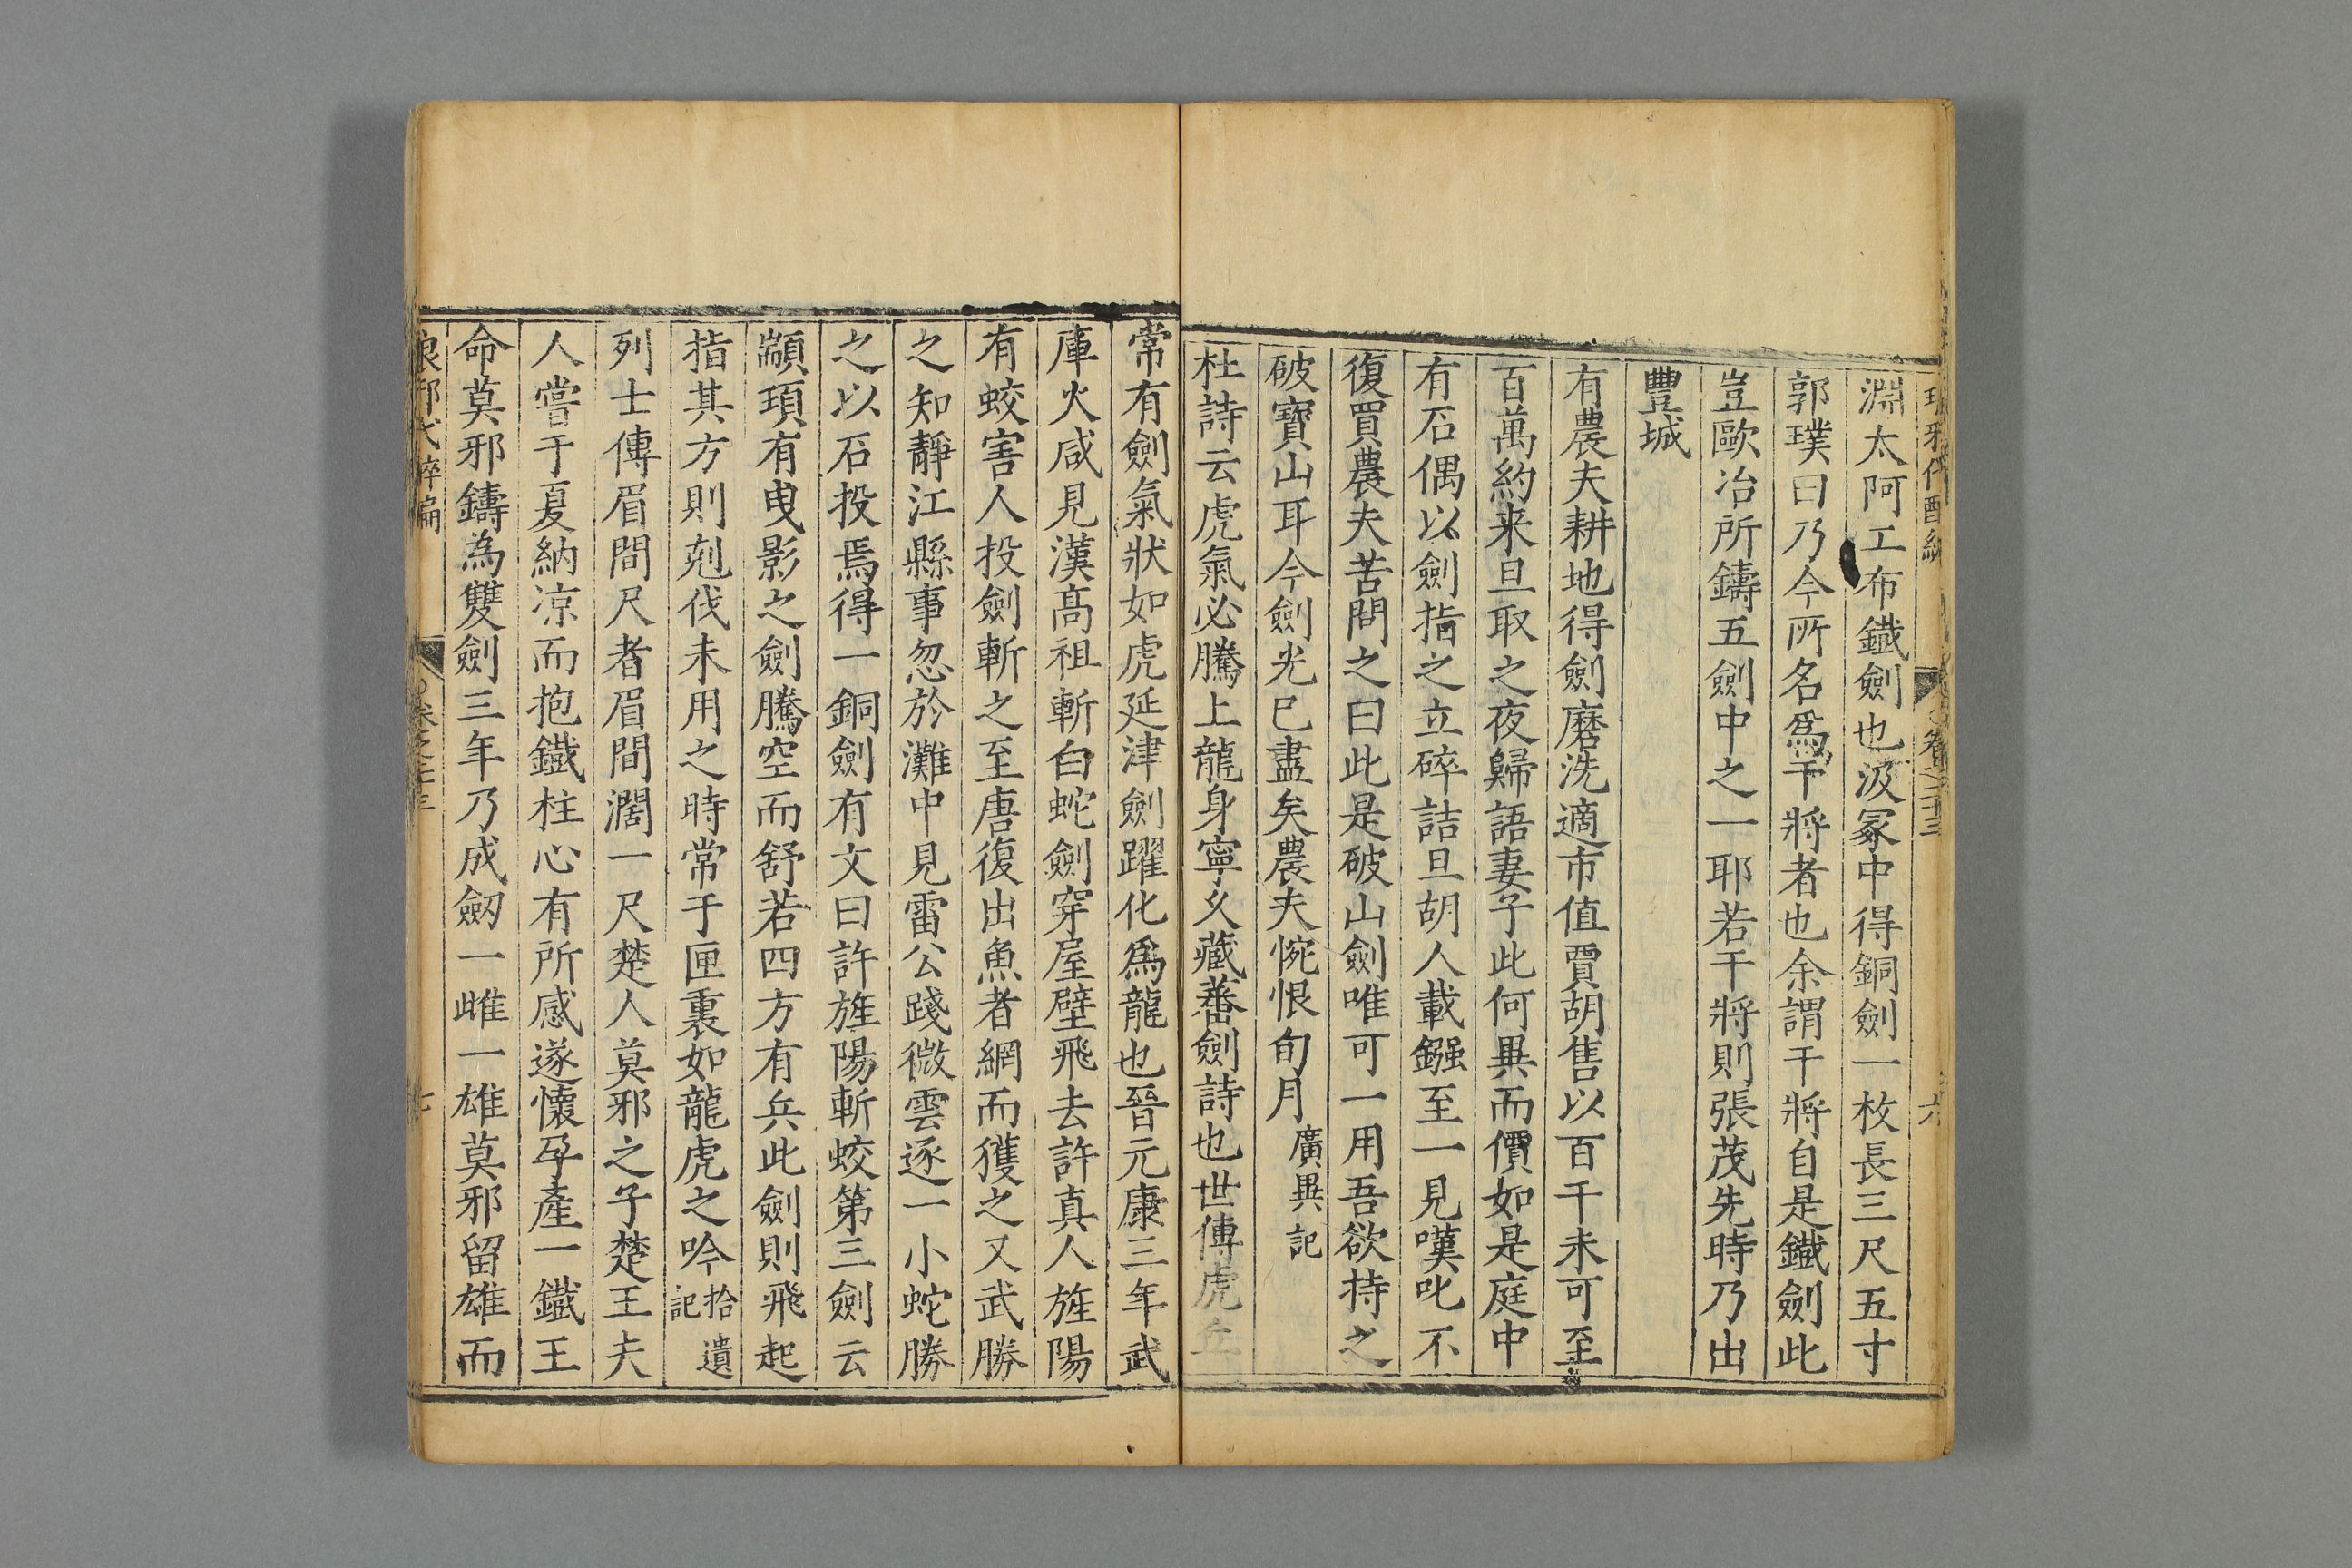 卷之二十三
六
淵太阿工布鐵劍也汲冢中得銅劍一枚長三尺五寸
郭璞曰乃今所名爲干將者也余謂干將自是鐵劍此
豈歐冶所鑄五劍中之一耶若干將則張茂先時乃出
豐城
有農夫耕地得劍磨洗適市值賈胡售以百千未可至
百萬約来旦取之夜歸語妻子此何異而價如是庭中
有石偶以劍指之立碎詰旦胡人載鏹至一見嘆叱不
復買農夫苦問之曰此是破山劍唯可一用吾欲持之
破寶山耳今劍光已盡矣農夫惋恨旬月廣異記
杜詩云虎氣必騰上龍身寧久藏蕃劍詩也世傳虎丘
常有劍氣狀如虎延津劍躍化爲龍也晉元康三年武
庫火咸見漢高祖斬白蛇劍穿屋壁飛去許真人旌陽
有蛟害人投劍斬之至唐復出魚者網而獲之又武勝
之知靜江縣事忽於灘中見雷公踐微雲逐一小蛇勝
之以石投焉得一銅劍有文曰許旌陽斬蛟第三劍云
顓頊有曳影之劍騰空而舒若四方有兵此劍則飛起
指其方則剋伐未用之時常于匣裏如龍虎之吟拾遺記
列士傳眉間尺者眉間濶一尺楚人莫邪之子楚王夫
人嘗于夏納凉而抱鐵柱心有所感遂懷孕產一鐵王
命莫邪鑄為雙劍三年乃成劒一雌一雄莫邪留雄而
琅邪代醉編
卷之二十三
七